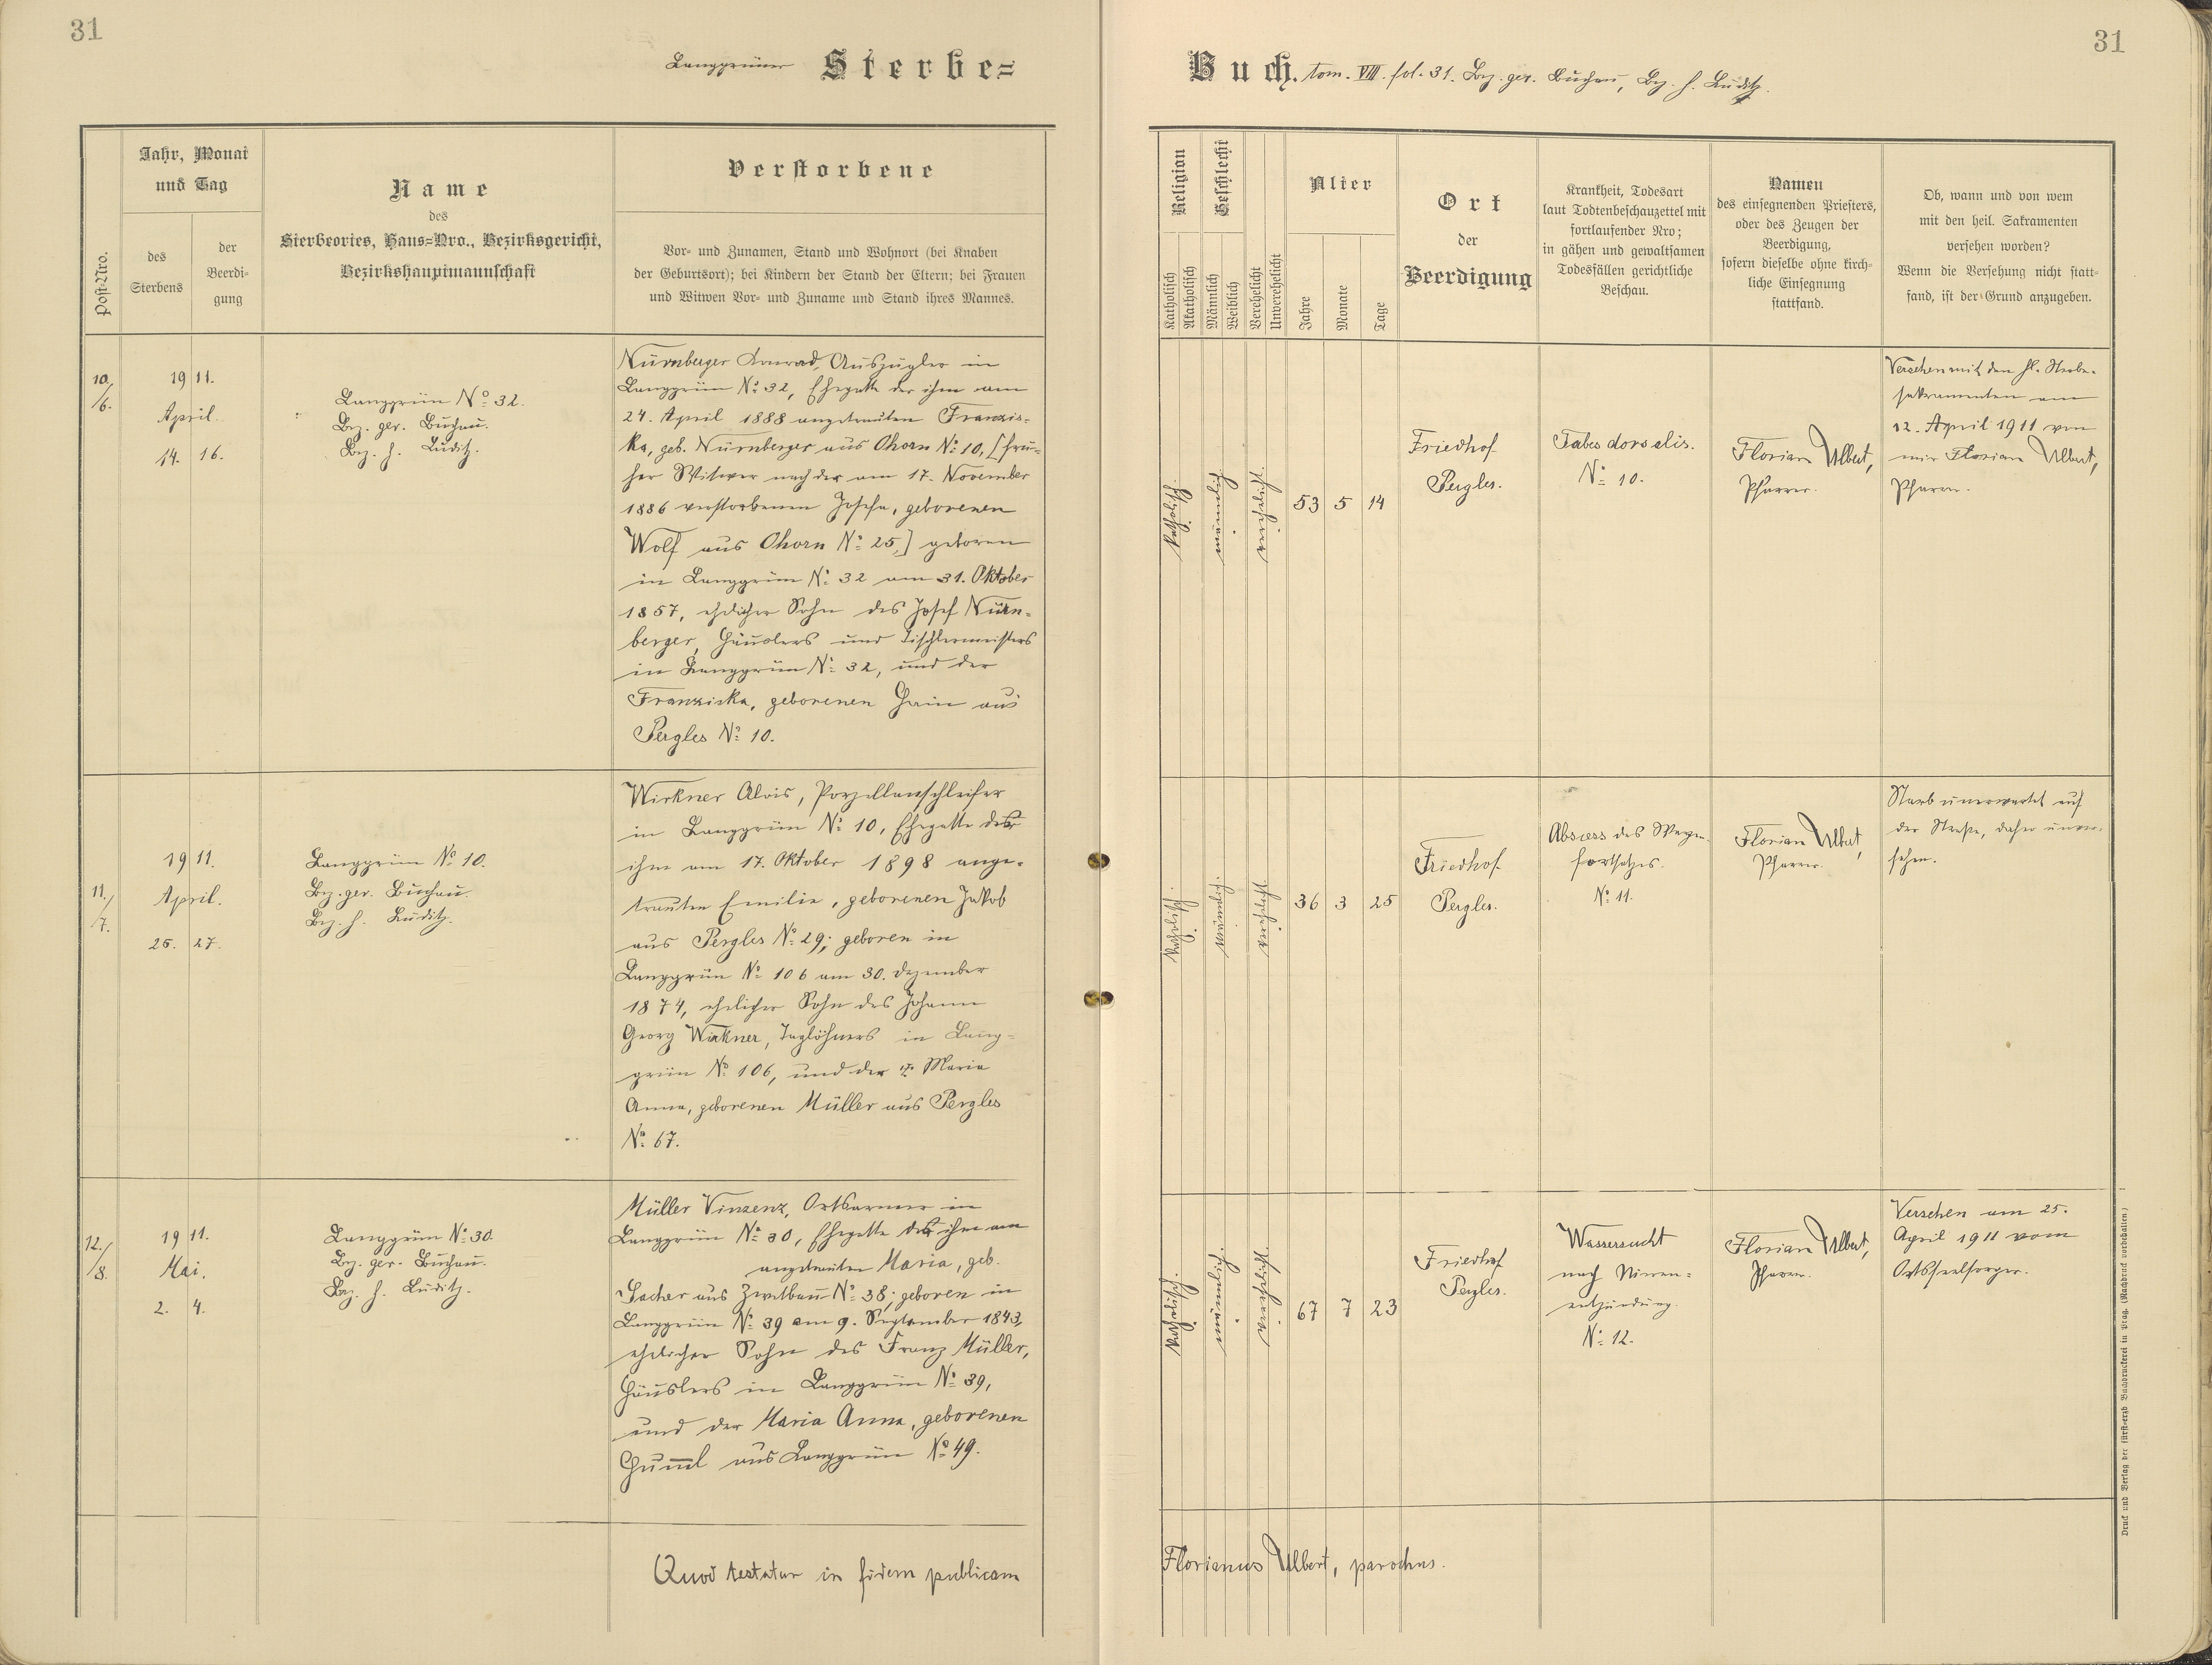 31
Langgrüner Sterbe=
Jahr, Monat
und Tag
Post-Nro.
des
Sterbens
der
Beerdi-
gung
Name
des
Sterbeortes, Haus=Nro., Bezirksgericht,
Bezirkshauptmannschaft
Verstorbene
Vor- und Zunamen, Stand und Wohnort (bei Knaben
der Geburtsort); bei Kindern der Stand der Eltern; bei Frauen
und Witwen Vor- und Zuname und Stand ihres Mannes.
10./6.
19 11.
April.
14. 16.
Langgrün No 32.
Bez. ger. Buchau.
Bez. h. Luditz.
Nürnberger Konrad, Auszügler in
Langgrün No 32, Ehegatte der ihm am
24. April 1888 angetrauten Franzis-
ka, geb. Nürnberger aus Ohorn No 10, [frü-
her Witwer nach der am 17. November
1886 verstorbenen Josefa, geborenen
Wolf aus Ohorn No 25,] geboren
in Langgrün No 32 am 31. Oktober
1857, ehelicher Sohn des Josef Nürn-
berger, Häuslers und Tischlermeisters
in Langgrün No 32, und der
Franziska, geborenen Hain aus
Pergles No 10.
11./7.
19 11.
April.
25. 27.
Langgrün No 10.
Bez. ger. Buchau.
Bez. h. Luditz.
Wirkner Alois, Porzellanschleifer
in Langgrün No 10, Ehegatte der
ihm am 17. Oktober 1898 ange-
trauten Emilie, geborenen Jakob
aus Pergles No 29; geboren in
Langgrün No 106 am 30. Dezember
1874, ehelicher Sohn des Johann
Georg Wirkner, Taglöhners in Lang-
grün No 106, und der Maria
Anna, geborenen Müller aus Pergles
No 67.
12./8.
19 11.
Mai.
2. 4.
Langgrün No 30.
Bez. ger. Buchau.
Bez. h. Luditz.
Müller Vinzenz, Ortsarmer in
Langgrün No 30, Ehegatte der ihm am
angetrauten Maria, geb.
Sacher aus Zwetbau No 38; geboren in
Langgrün No 39 am 9. September 1843,
ehelicher Sohn des Franz Müller,
Häuslers in Langgrün No 39,
und der Maria Anna, geborenen
Hum̄l aus Langgrün No 49.
Quod testatur in fidem publicam
31
Buch. tom. VIII. fol. 31. Bez. ger. Buchau, Bez. h. Luditz.
Religion
Katholisch
Akatholisch
Geschlecht
Männlich
Weiblich
Verehelicht
Unverehelicht
Alter
Jahre
Monate
Tage
Ort
der
Beerdigung
Krankheit, Todesart
laut Todtenbeschauzettel mit
fortlaufender Nro;
in gähen und gewaltsamen
Todesfällen gerichtliche
Beschau.
Namen
des einsegnenden Priesters,
oder des Zeugen der
Beerdigung,
sofern dieselbe ohne kirch-
liche Einsegnung
stattfand.
Ob, wann und von wem
mit den heil. Sakramenten
versehen worden?
Wenn die Versehung nicht statt-
fand, ist der Grund anzugeben.
katholisch.
männlich.
verehelicht.
53 5 14
Friedhof
Pergles.
Tabes dorsalis.
No 10.
Florian Ulbert,
Pfarrer.
Versehen mit den hl. Sterbe-
sakramenten am
12. April 1911 von
mir Florian Ulbert,
Pfarrer.
katholisch.
männlich.
verehelicht.
36 3 25
Friedhof
Pergles.
Abscess des Warzen-
fortsatzes.
No 11.
Florian Ulbert,
Pfarrer.
Starb unerwartet auf
der Straße, daher unver-
sehen.
katholisch.
männlich.
verehelicht.
67 7 23
Friedhof
Pergles.
Wassersucht
nach Nieren-
entzündung.
No 12.
Florian Ulbert,
Pfarrer.
Versehen am 25.
April 1911 vom
Ortsseelsorger.
Florianus Ulbert, parochus.
Druck und Verlag der fürst-erzb. Buchdruckerei in Prag. (Nachdruck vorbehalten.)